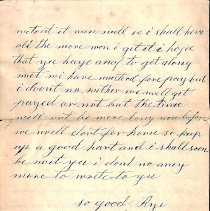 not cit it wuse mill so i shall have
all the more wen i get it i hope
that ye haye anof to get along
mit wi have mustrd fore pray but
i dont no wether we will get
payed or not but the time
well not be more long now before
we well start for home so keep
up a good hart and i shall soon
be with you i dont no aney
more to write to ye
so good Bye